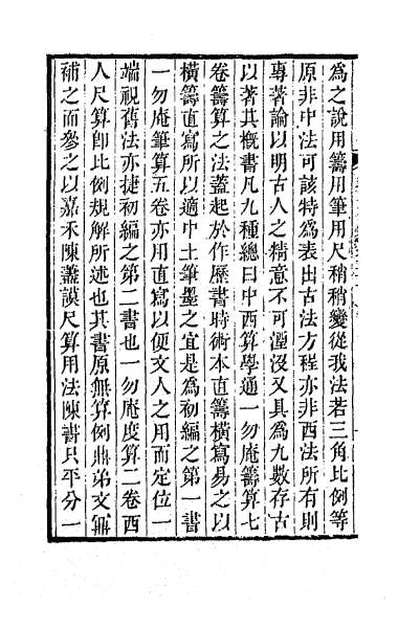 為之說用籌用筆用尺稍稍變從我法若三角比例等
原非中法可該特為表出古法方程亦非西法所有則
專著論以明古人之精意不可湮沒又具為九數存古
以著其概書凡九種總曰中西算學通一勿庵籌算七
卷籌算之法蓋起於作厯書時術本直籌橫寫易之以
橫籌直寫所以適中土筆墨之宜是為初編之第一書
一勿庵筆算五卷亦用直寫以便文人之用而定位一
端視舊法亦捷初編之第二書也一勿庵度算二卷西
人尺算卽比例規解所述也其書原無算例鼎弟文鼏
補之而參之以嘉禾陳藎謨尺算用法陳書只平分一